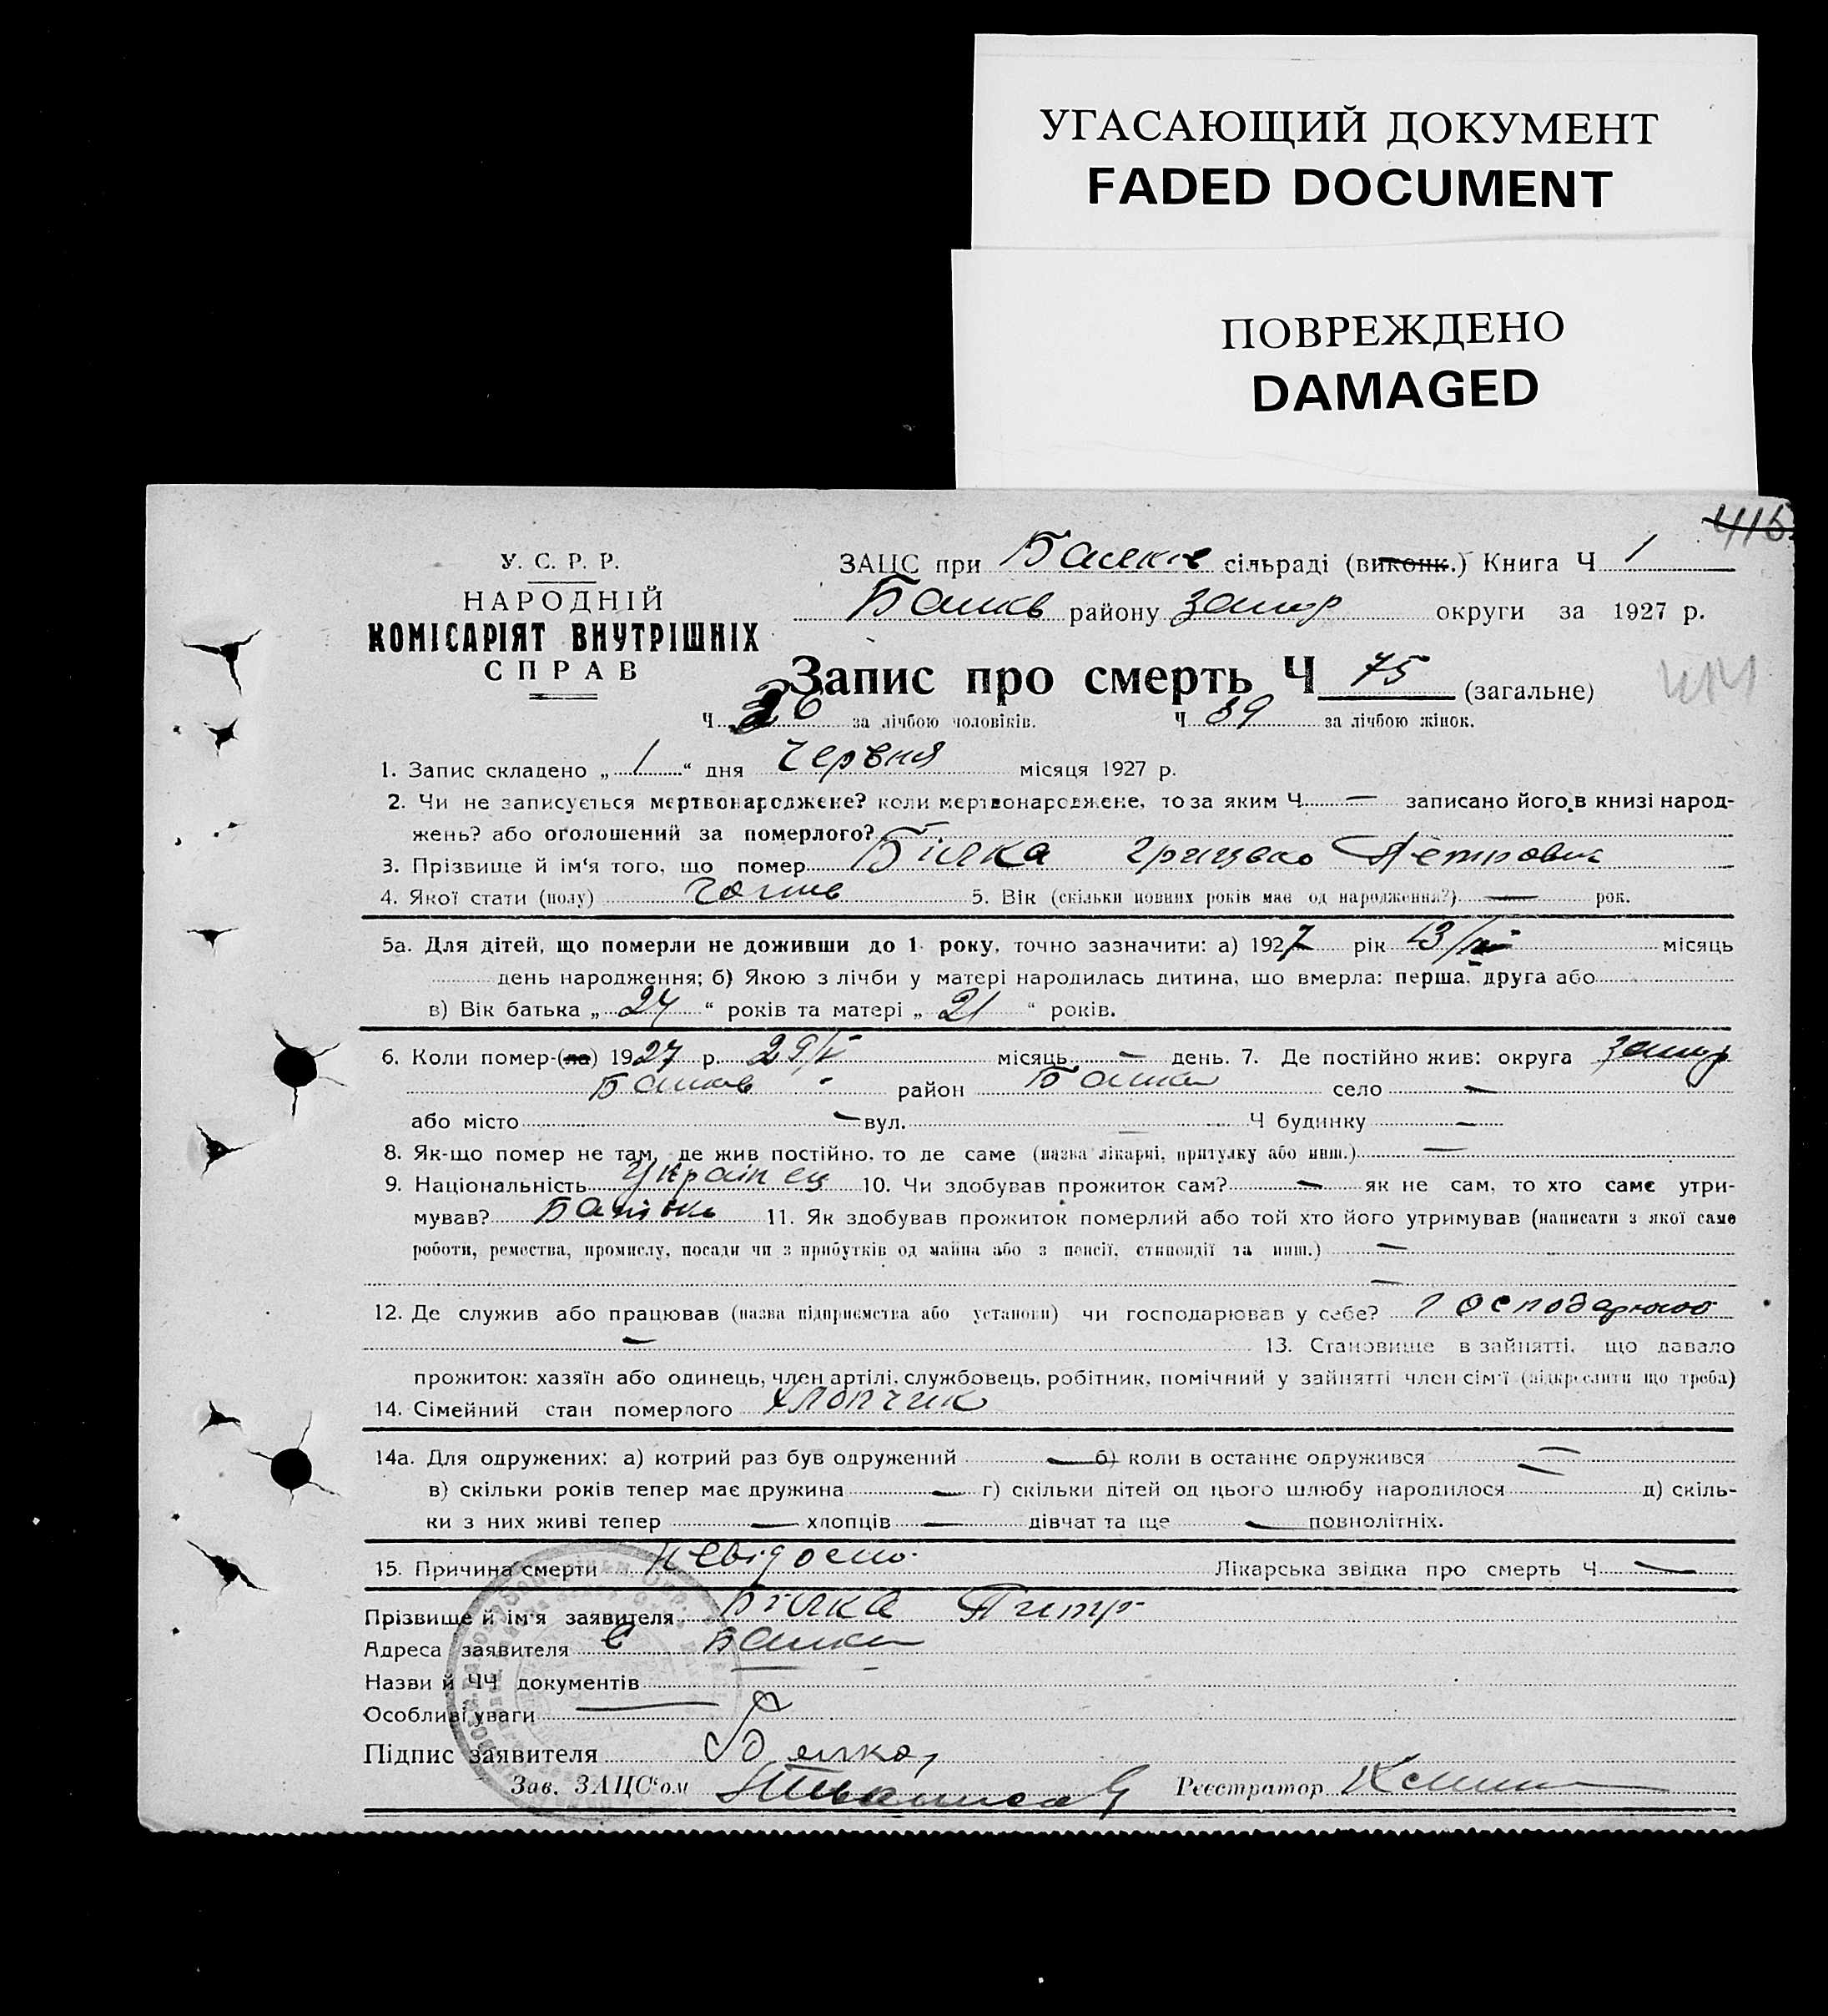 УГАСАЮЩИЙ ДОКУМЕНТ
FADED DOCUMENT
ПОВРЕЖДЕНО
DAMAGED
416
У. С. Р. Р.
НАРОДНІЙ
КОМІСАРІЯТ ВНУТРІШНІХ
СПРАВ
ЗАЦС при сільраді (виконк.) Книга Ч 1
району округи за 1927 р.
Запис про смерть Ч 75 (загальне)
Ч 36 за лічбою чоловіків. Ч 39 за лічбою жінок.
1. Запис складено „ 1 “ дня Червня місяця 1927 р.
2. Чи не записується мертвонароджене? коли мертвонароджене, то за яким Ч — записано його в книзі народ-
жень? або оголошений за померлого? —
3. Прізвище й ім'я того, що помер Білка Грицько Петрович
4. Якої стати (полу) 5. Вік (скільки повних років має од народження?) — рок.
5а. Для дітей, що померли не доживши до 1 року, точно зазначити: а) 1927 рік місяць
день народження; б) Якою з лічби у матері народилась дитина, що вмерла: перша, друга або
в) Вік батька „ 24 “ років та матері „ 21 “ років.
6. Коли помер-(ла) 1927 р. 29/V місяць — день. 7. Де постійно жив: округа
район село —
або місто — вул. Ч будинку —
8. Як-що помер не там, де жив постійно, то де саме (назва лікарні, притулку або инш.) —
9. Національність Українец 10. Чи здобував прожиток сам? — як не сам, то хто саме утри-
мував? Батько 11. Як здобував прожиток померлий або той хто його утримував (написати з якої саме
роботи, ремества, промислу, посади чи з прибутків од майна або з пенсії, стипендії та инш.) —
—
12. Де служив або працював (назва підприємства або установи) чи господарював у себе?
— 13. Становище в зайнятті, що давало
прожиток: хазяїн або одинець, член артілі, службовець, робітник, помічний у зайнятті член сім'ї (підкреслити що треба)
14. Сімейний стан померлого хлопчик
14а. Для одружених: а) котрий раз був одружений — б) коли в останнє одружився —
в) скільки років тепер має дружина — г) скільки дітей од цього шлюбу народилося — д) скіль-
ки з них живі тепер — хлопців — дівчат та ще — повнолітніх.
15. Причина смерти Невідомо. Лікарська звідка про смерть Ч —
Прізвище й ім'я заявителя Білка Петр
Адреса заявителя
Назви й ЧЧ документів —
Особливі уваги —
Підпис заявителя Білка
Зав. ЗАЦС'ом Реєстратор